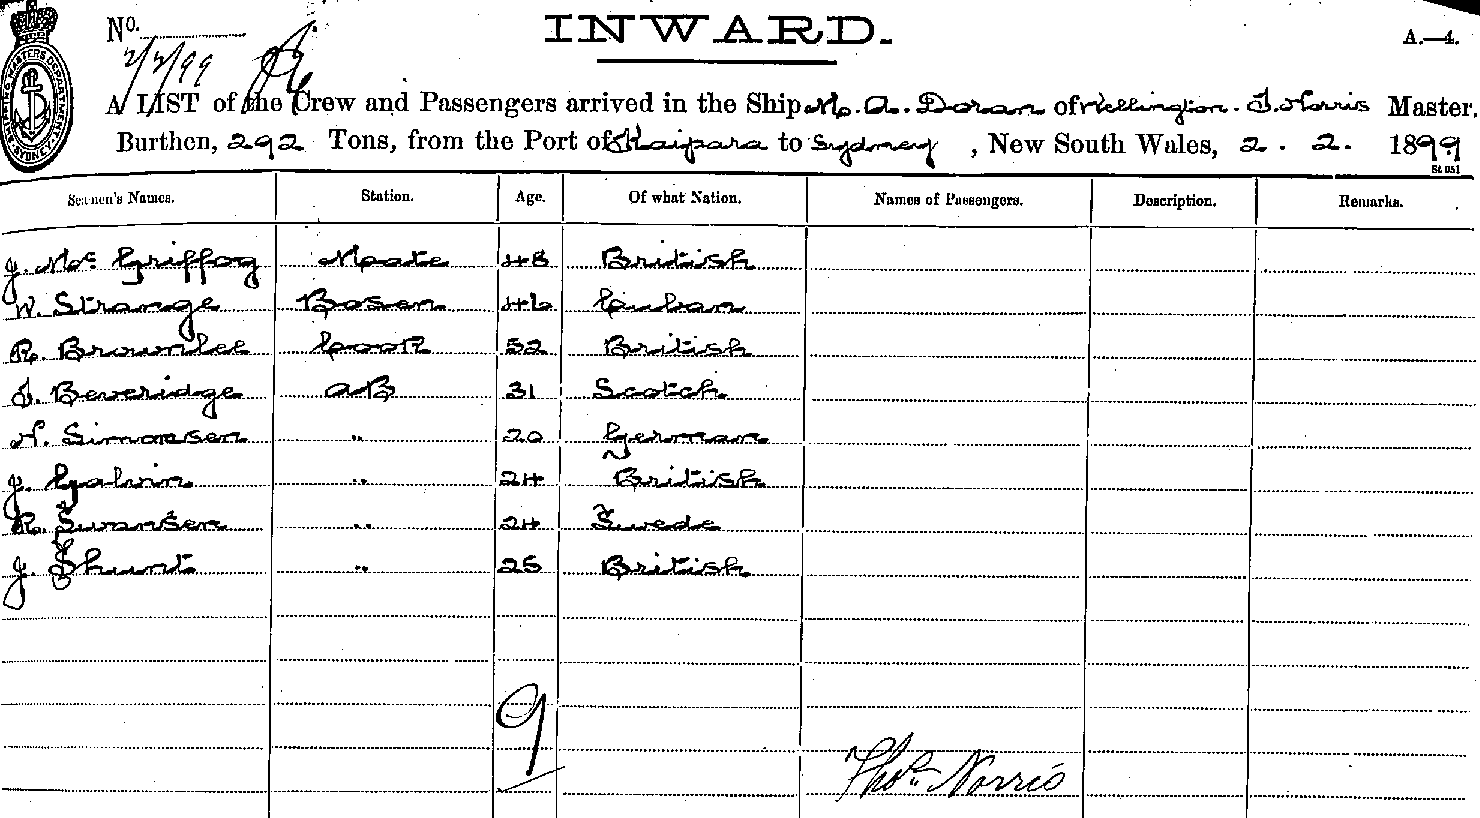 No.
INWARD.
A.—4.
2/2/99
A LIST of the Crew and Passengers arrived in the Ship M. A. Doran of Wellington. T. Norris Master,
Burthen, 292 Tons, from the Port of Kaipara to Sydney, New South Wales, 2. 2. 1899
St 051
SHIPPING MASTERS DEPARTMENT SYDNEY
Seamen's Names. Station. Age. Of what Nation. Names of Passengers. Description. Remarks.
J. Mc Griffog Mate 48 British
W. Strange Bosen 46 Cuban
R. Brownlee Cook 52 British
T. Beveridge AB 31 Scotch
N. Simonsen " 20 German
J. Galvin " 24 British
R. Swansen " 24 Swede
J. Shunt " 25 British
9
Thos Norris